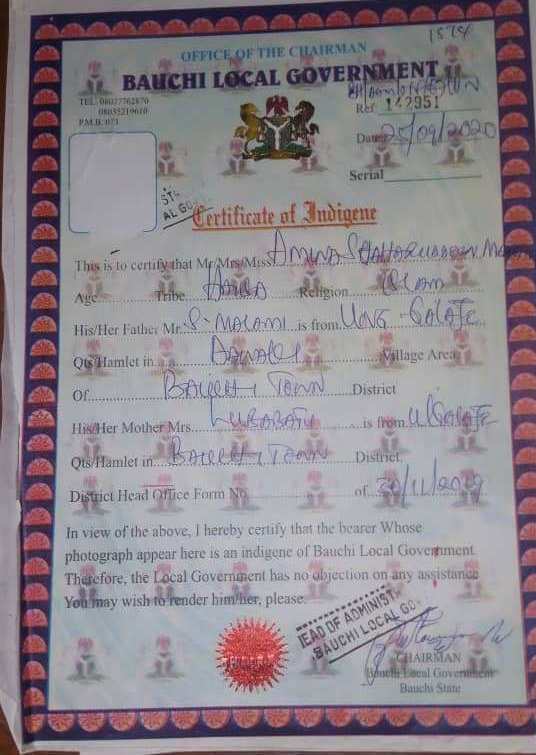 1574
OFFICE OF THE CHAIRMAN
BAUCHI LOCAL GOVERNMENT
TEL: 08027762870
08035219610
P.M.B. 073
Ref: 142951
Date 25/09/2020
Serial
STG
AL GO
Certificate of Indigene
This is to certify that Mr/Mrs/Miss Amina
Age Tribe Hausa Religion Islam
His/Her Father Mr. S. Malami is from Ung. Galafe
Qts/Hamlet in a Dawaki Village Area
Of Bauchi Town District
His/Her Mother Mrs. Lubabatu is from U/Galafe
Qts/Hamlet in Bauchi Town District,
District Head Office Form No of 30/11/2019
In view of the above, I hereby certify that the bearer Whose
photograph appear here is an indigene of Bauchi Local Government
Therefore, the Local Government has no objection on any assistance
You may wish to render him/her, please.
HEAD OF ADMINIST
BAUCHI LOCAL GO
CHAIRMAN
Bauchi Local Government
Bauchi State